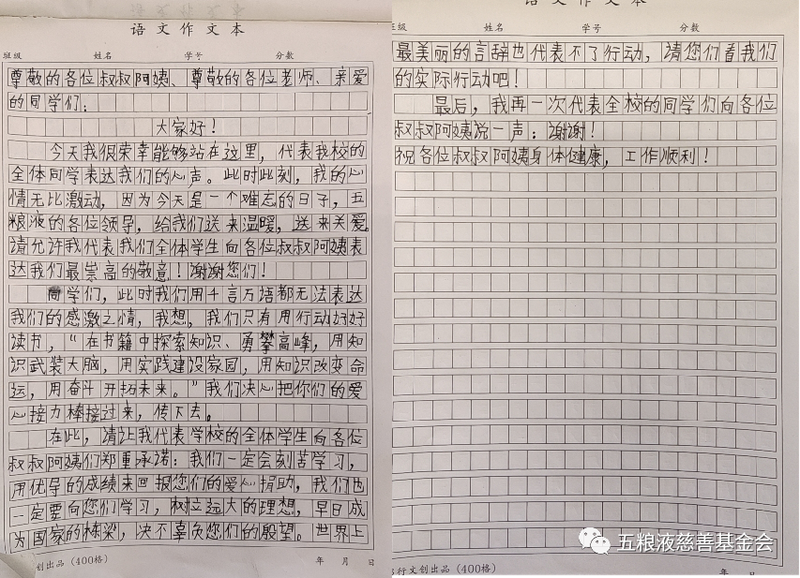 语文作文本
班级 姓名 学号 分数
尊敬的各位叔叔阿姨、尊敬的各位老师、亲爱
的同学们:
大家好!
今天我很荣幸能够站在这里,代表我校的
全体同学表达我们的心声。此时此刻,我的心
情无比激动,因为今天是一个难忘的日子,五
粮液的各位领导,给我们送来温暖,送来关爱。
请允许我代表我们全体学生向各位叔叔阿姨表
达我们最崇高的敬意!谢谢您们!
同学们,此时我们用千言万语都无法表达
我们的感激之情,我想,我们只有用行动好好
读书,“在书籍中探索知识、勇攀高峰,用知
识武装大脑,用实践建设家园,用知识改变命
运,用奋斗开拓未来。”我们决心把你们的爱
心接力棒接过来,传下去。
在此,请让我代表学校的全体学生向各位
叔叔阿姨们郑重承诺:我们一定会刻苦学习,
用优异的成绩来回报您们的爱心捐助,我们也
一定要向您们学习,树立远大的理想,早日成
为国家的栋梁,决不辜负您们的殷望。世界上
创出品(400格) 年 月 日
语文作文本
班级 姓名 学号 分数
最美丽的言辞也代表不了行动,请您们看我们
的实际行动吧!
最后,我再一次代表全校的同学们向各位
叔叔阿姨说一声:谢谢!
祝各位叔叔阿姨身体健康,工作顺利!
行文创出品(400格) 年 月 日
五粮液慈善基金会